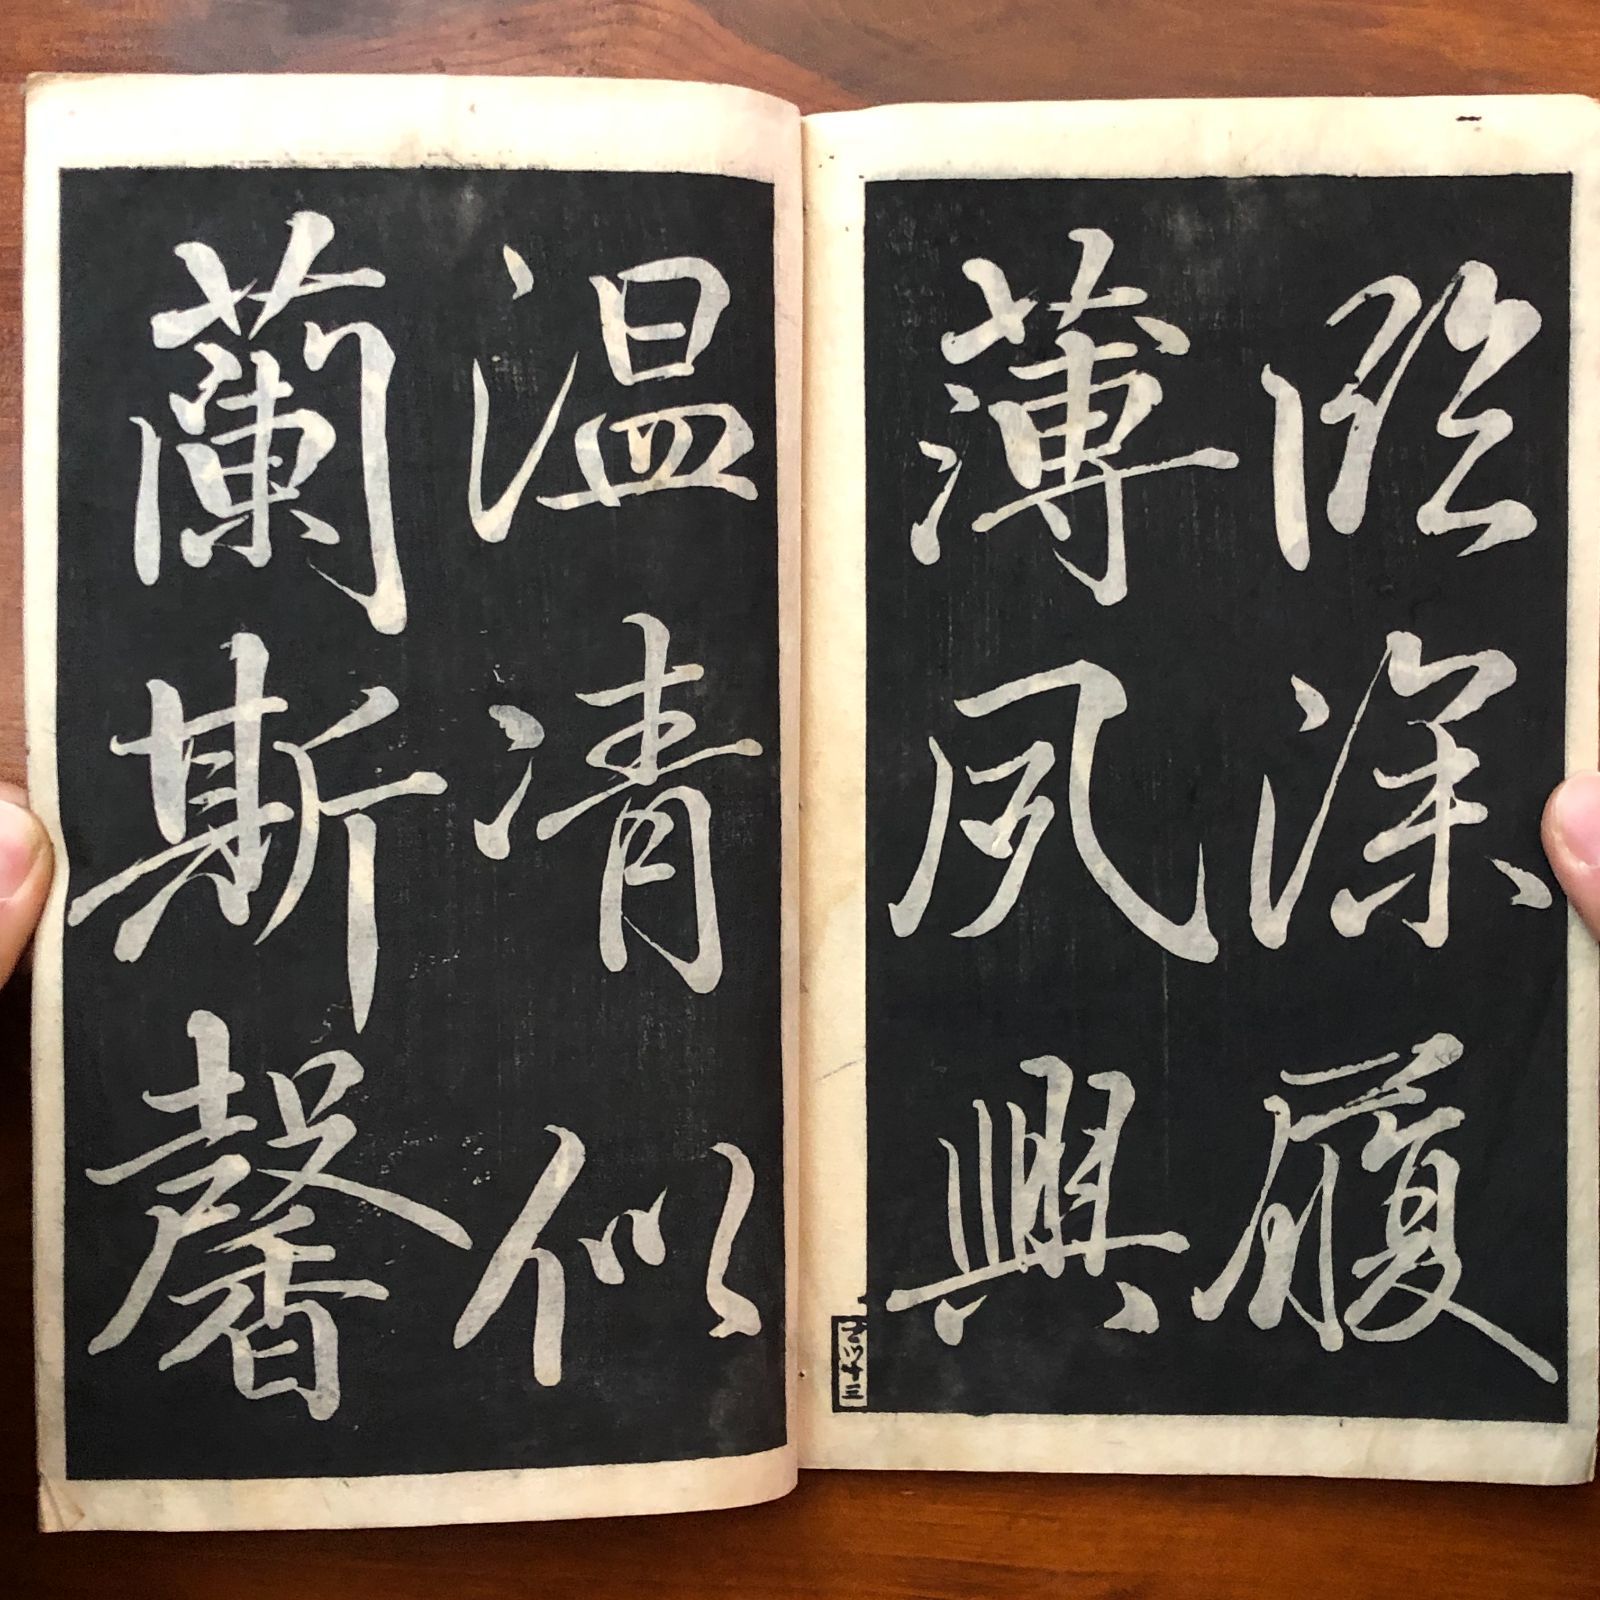 臨深履
薄夙興
温凊似
蘭斯馨